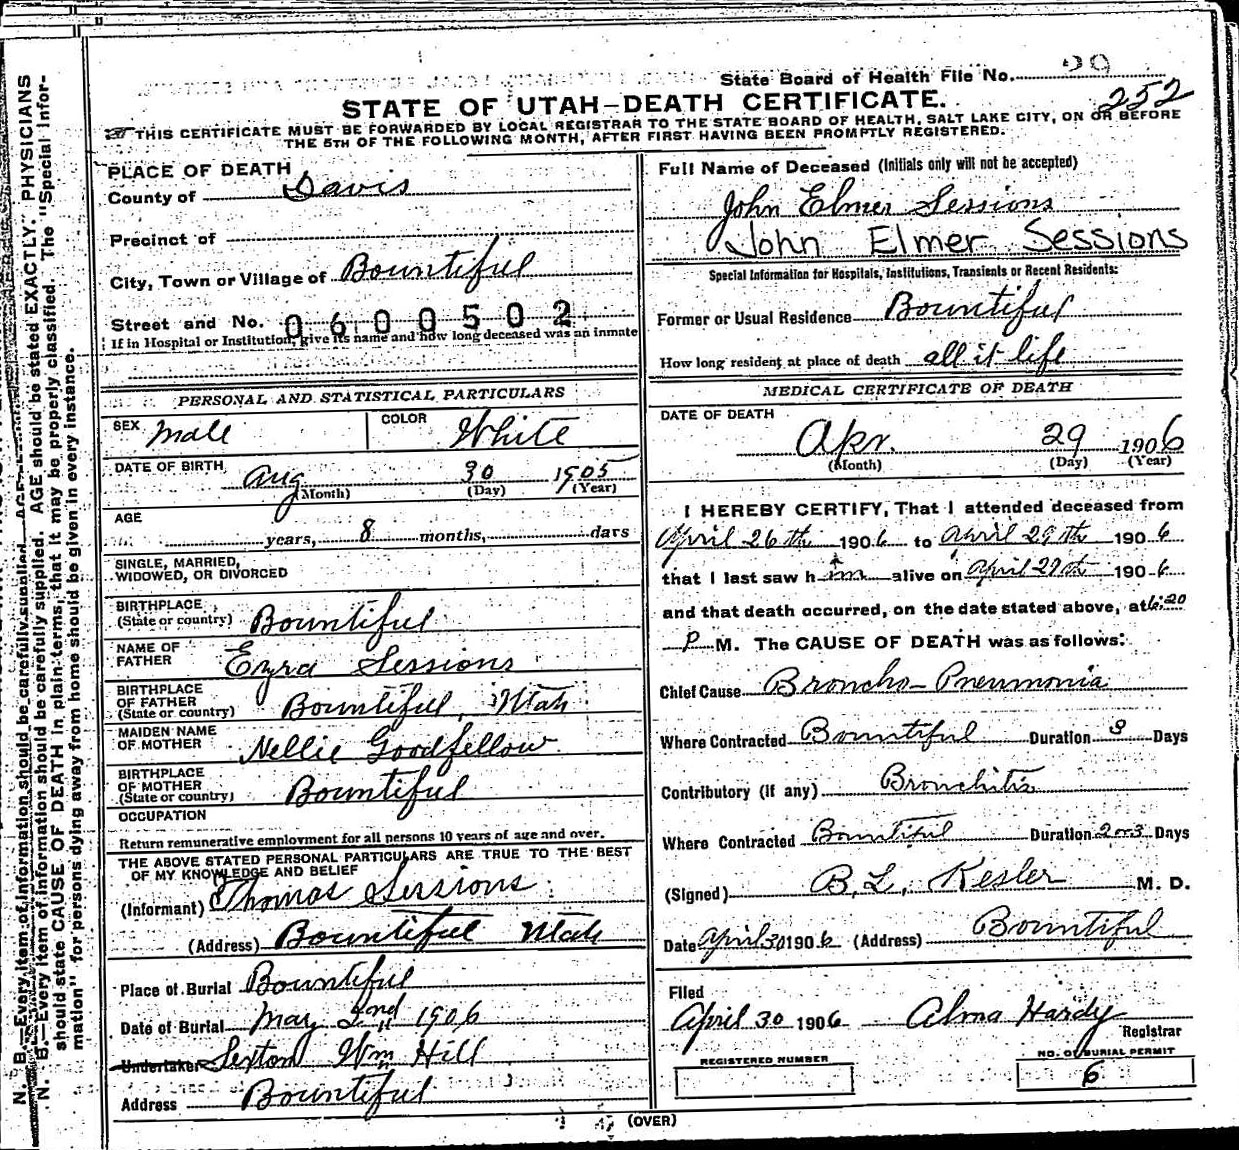 State Board of Health File No. 99
252
STATE OF UTAH—DEATH CERTIFICATE.
THIS CERTIFICATE MUST BE FORWARDED BY LOCAL REGISTRAR TO THE STATE BOARD OF HEALTH, SALT LAKE CITY, ON OR BEFORE
THE 5TH OF THE FOLLOWING MONTH, AFTER FIRST HAVING BEEN PROMPTLY REGISTERED.
PLACE OF DEATH
County of Davis
Precinct of
City, Town or Village of Bountiful
Street and No. 0600502
If in Hospital or Institution, give its name and how long deceased was an inmate
PERSONAL AND STATISTICAL PARTICULARS
SEX Male COLOR White
DATE OF BIRTH Aug 30 1905
(Month) (Day) (Year)
AGE
years, 8 months, days
SINGLE, MARRIED,
WIDOWED, OR DIVORCED
BIRTHPLACE
(State or country) Bountiful
NAME OF
FATHER Ezra Sessions
BIRTHPLACE
OF FATHER
(State or country) Bountiful, Utah
MAIDEN NAME
OF MOTHER Nellie Goodfellow
BIRTHPLACE
OF MOTHER
(State or country) Bountiful
OCCUPATION
Return remunerative employment for all persons 10 years of age and over.
THE ABOVE STATED PERSONAL PARTICULARS ARE TRUE TO THE BEST
OF MY KNOWLEDGE AND BELIEF
(Informant) Thomas Sessions
(Address) Bountiful Utah
Place of Burial Bountiful
Date of Burial May 2nd 1906
Undertaker Sexton Wm Hill
Address Bountiful
Full Name of Deceased (Initials only will not be accepted)
John Elmer Sessions
John Elmer Sessions
Special Information for Hospitals, Institutions, Transients or Recent Residents:
Former or Usual Residence Bountiful
How long resident at place of death all it life
MEDICAL CERTIFICATE OF DEATH
DATE OF DEATH
Apr. 29 1906
(Month) (Day) (Year)
I HEREBY CERTIFY, That I attended deceased from
April 26th 1906 to April 29th 1906
that I last saw him alive on April 29th 1906
and that death occurred, on the date stated above, at 6:20
P M. The CAUSE OF DEATH was as follows:
Chief Cause Broncho-Pneumonia
Where Contracted Bountiful Duration 3 Days
Contributory (if any) Bronchitis
Where Contracted Bountiful Duration 2 or 3 Days
(Signed) B. L. Kesler M. D.
Date April 30 1906 (Address) Bountiful
Filed
April 30 1906 Alma Hardy
Registrar
REGISTERED NUMBER
NO. OF BURIAL PERMIT
6
(OVER)
N. B.—Every item of information should be carefully supplied. AGE should be stated EXACTLY. PHYSICIANS
should state CAUSE OF DEATH in plain terms, that it may be properly classified. The "Special Infor-
mation" for persons dying away from home should be given in every instance.